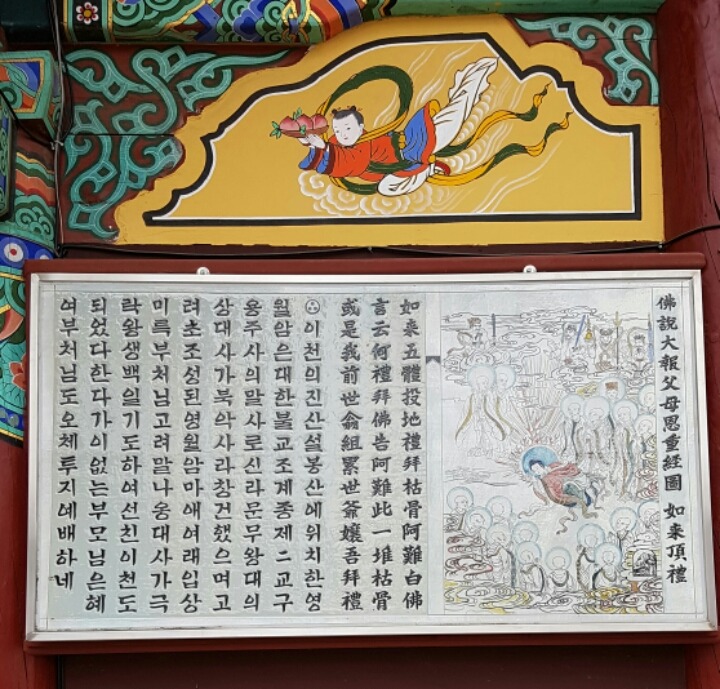 佛說大報父母恩重経圖 如来頂禮
如来五體投地禮拜枯骨阿難白佛
言云何禮拜佛告阿難此一堆枯骨
或是我前世翁組累世爺孃吾拜禮
이천의진산설봉산에위치한영
월암은대한불교조계종제二교구
용주사의말사로신라문무왕대의
상대사가북악사라창건했으며고
려초조성된영월암마애여래입상
미륵부처님고려말나옹대사가극
락왕생백일기도하여선친이천도
되었다한다가이없는부모님은혜
여부처님도오체투지예배하네